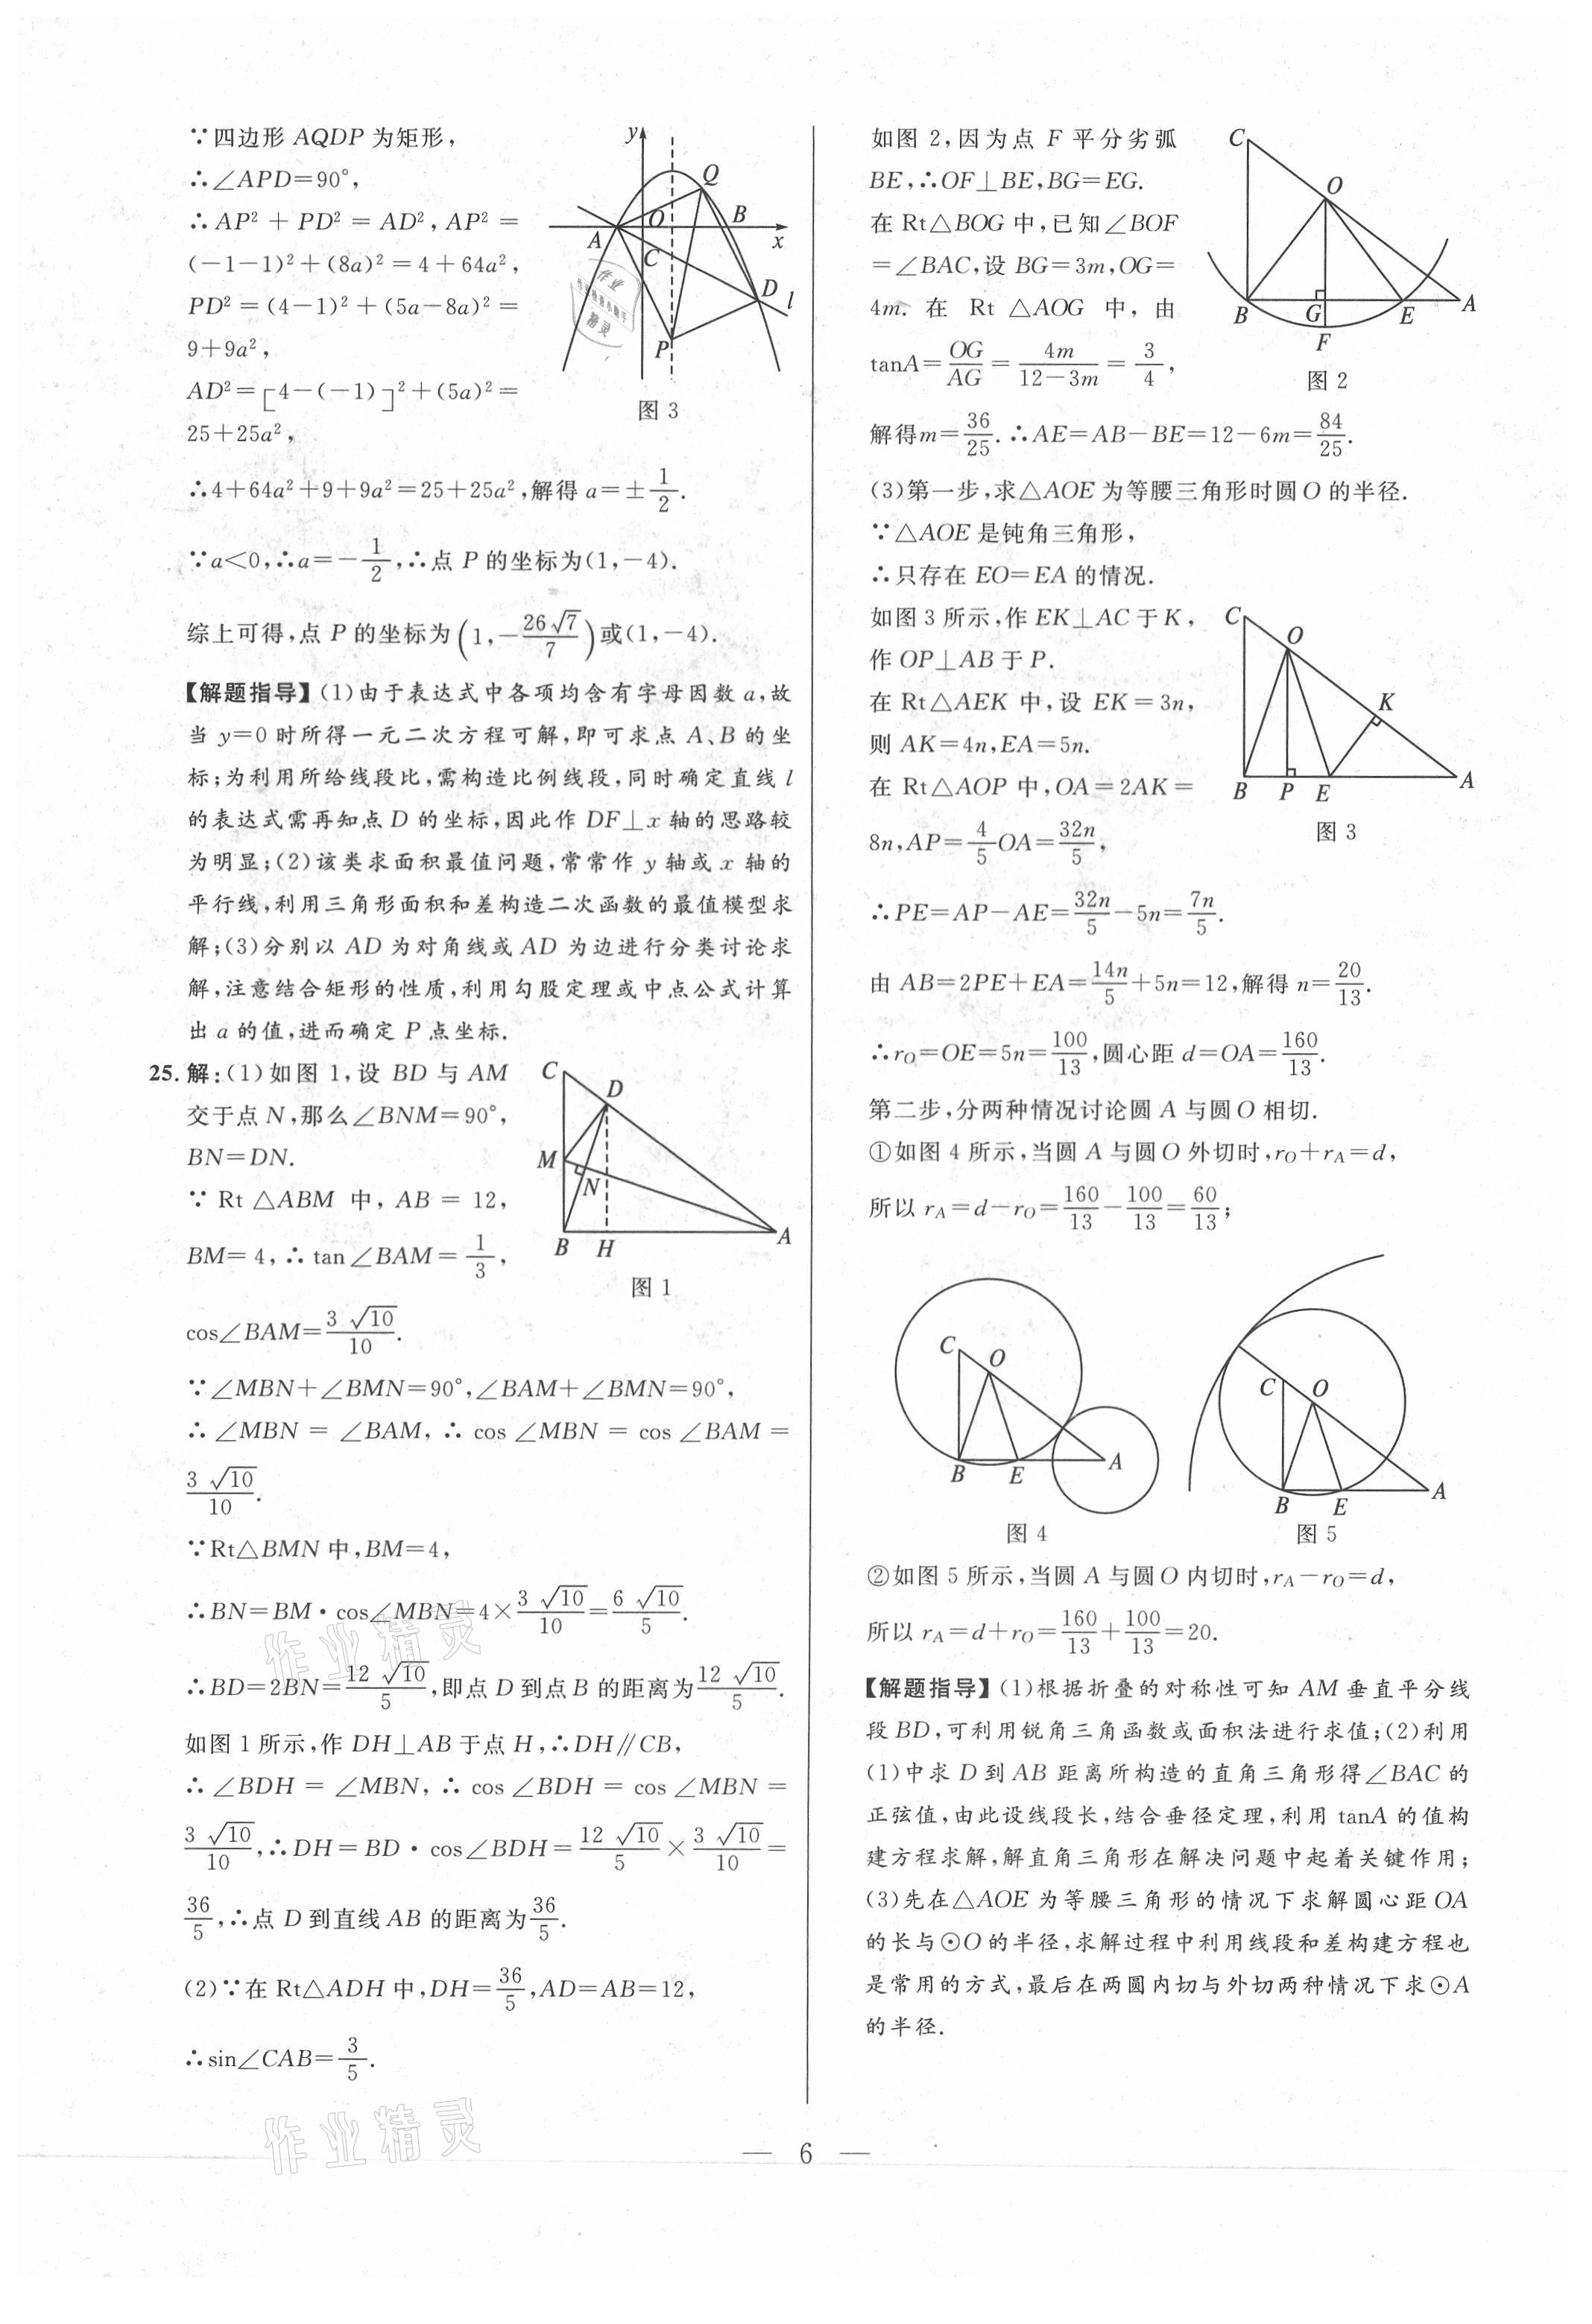 ∵四边形 AQDP 为矩形,
∴∠APD=90°,
∴AP²+PD²=AD²,AP²=
(-1-1)²+(8a)²=4+64a²,
PD²=(4-1)²+(5a-8a)²=
9+9a²,
AD²=[4-(-1)]²+(5a)²=
25+25a²,
∴4+64a²+9+9a²=25+25a²,解得 a=±1/2.
∵a<0,∴a=-1/2,∴点 P 的坐标为(1,-4).
综上可得,点 P 的坐标为(1,-26√7/7)或(1,-4).
y
Q
O
B
A
x
C
D
l
P
图 3
作业
精灵
【解题指导】(1)由于表达式中各项均含有字母因数 a,故
当 y=0 时所得一元二次方程可解,即可求点 A、B 的坐
标;为利用所给线段比,需构造比例线段,同时确定直线 l
的表达式需再知点 D 的坐标,因此作 DF⊥x 轴的思路较
为明显;(2)该类求面积最值问题,常常作 y 轴或 x 轴的
平行线,利用三角形面积和差构造二次函数的最值模型求
解;(3)分别以 AD 为对角线或 AD 为边进行分类讨论求
解,注意结合矩形的性质,利用勾股定理或中点公式计算
出 a 的值,进而确定 P 点坐标.
25.解:(1)如图 1,设 BD 与 AM
交于点 N,那么∠BNM=90°,
BN=DN.
∵ Rt △ABM 中, AB = 12,
BM=4,∴tan∠BAM=1/3,
cos∠BAM=3√10/10.
C
D
M
N
B
H
A
图 1
∵∠MBN+∠BMN=90°,∠BAM+∠BMN=90°,
∴∠MBN=∠BAM,∴cos∠MBN=cos∠BAM=
3√10/10.
∵Rt△BMN 中,BM=4,
∴BN=BM·cos∠MBN=4×3√10/10=6√10/5.
∴BD=2BN=12√10/5,即点 D 到点 B 的距离为12√10/5.
如图 1 所示,作 DH⊥AB 于点 H,∴DH∥CB,
∴∠BDH=∠MBN,∴cos∠BDH=cos∠MBN=
3√10/10,∴DH=BD·cos∠BDH=12√10/5×3√10/10=
36/5,∴点 D 到直线 AB 的距离为36/5.
(2)∵在 Rt△ADH 中,DH=36/5,AD=AB=12,
∴sin∠CAB=3/5.
作业精灵
作业精灵
如图 2,因为点 F 平分劣弧
BE,∴OF⊥BE,BG=EG.
在 Rt△BOG 中,已知∠BOF
=∠BAC,设 BG=3m,OG=
4m. 在 Rt △AOG 中, 由
tanA=OG/AG=4m/(12-3m)=3/4,
C
O
B
G
E
A
F
图 2
解得m=36/25.∴AE=AB-BE=12-6m=84/25.
(3)第一步,求△AOE 为等腰三角形时圆 O 的半径.
∵△AOE 是钝角三角形,
∴只存在 EO=EA 的情况.
如图 3 所示,作 EK⊥AC 于 K,
作 OP⊥AB 于 P.
在 Rt△AEK 中,设 EK=3n,
则 AK=4n,EA=5n.
在 Rt△AOP 中,OA=2AK=
8n,AP=4/5OA=32n/5,
C
O
K
B
P
E
A
图 3
∴PE=AP-AE=32n/5-5n=7n/5.
由 AB=2PE+EA=14n/5+5n=12,解得 n=20/13.
∴r_O=OE=5n=100/13,圆心距 d=OA=160/13.
第二步,分两种情况讨论圆 A 与圆 O 相切.
①如图 4 所示,当圆 A 与圆 O 外切时,r_O+r_A=d,
所以 r_A=d-r_O=160/13-100/13=60/13;
C
O
B
E
A
图 4
C
O
B
E
A
图 5
②如图 5 所示,当圆 A 与圆 O 内切时,r_A-r_O=d,
所以 r_A=d+r_O=160/13+100/13=20.
【解题指导】(1)根据折叠的对称性可知 AM 垂直平分线
段 BD,可利用锐角三角函数或面积法进行求值;(2)利用
(1)中求 D 到 AB 距离所构造的直角三角形得∠BAC 的
正弦值,由此设线段长,结合垂径定理,利用 tanA 的值构
建方程求解,解直角三角形在解决问题中起着关键作用;
(3)先在△AOE 为等腰三角形的情况下求解圆心距 OA
的长与⊙O 的半径,求解过程中利用线段和差构建方程也
是常用的方式,最后在两圆内切与外切两种情况下求⊙A
的半径.
— 6 —